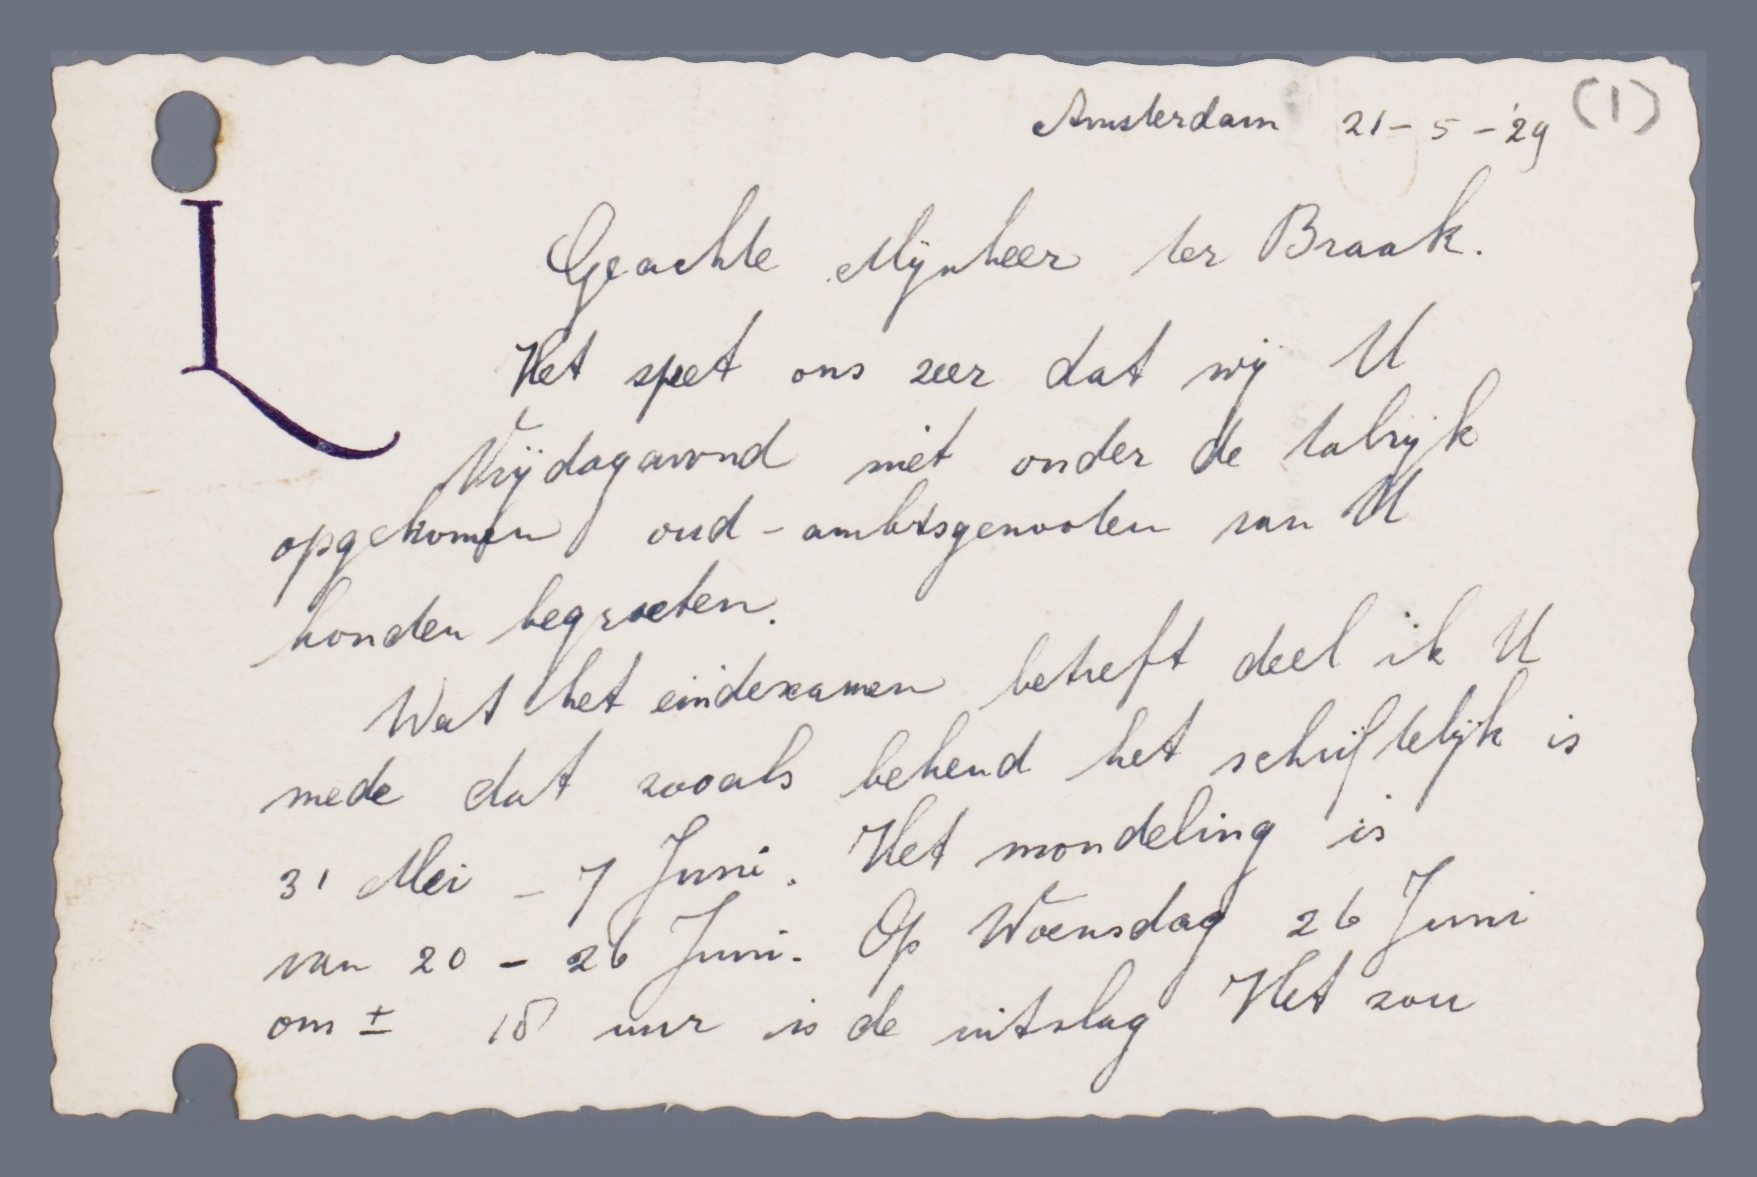 (1)
Amsterdam 21-5-'29
Geachte Mijnheer ter Braak.
Het speet ons zeer dat wij U
Vrijdagavond niet onder de talrijk
opgekomen oud-ambtsgenooten van U
konden begroeten.
Wat het eindexamen betreft deel ik U
mede dat zooals bekend het schriftelijk is
31 Mei - 7 Juni. Het mondeling is
van 20 - 26 Juni. Op Woensdag 26 Juni
om ± 18 uur is de uitslag Het zou